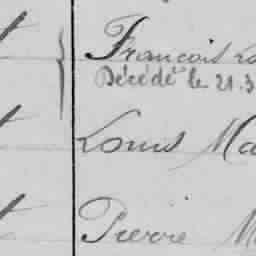 François
Décédé le 21.3
Louis Ma
Pierre M